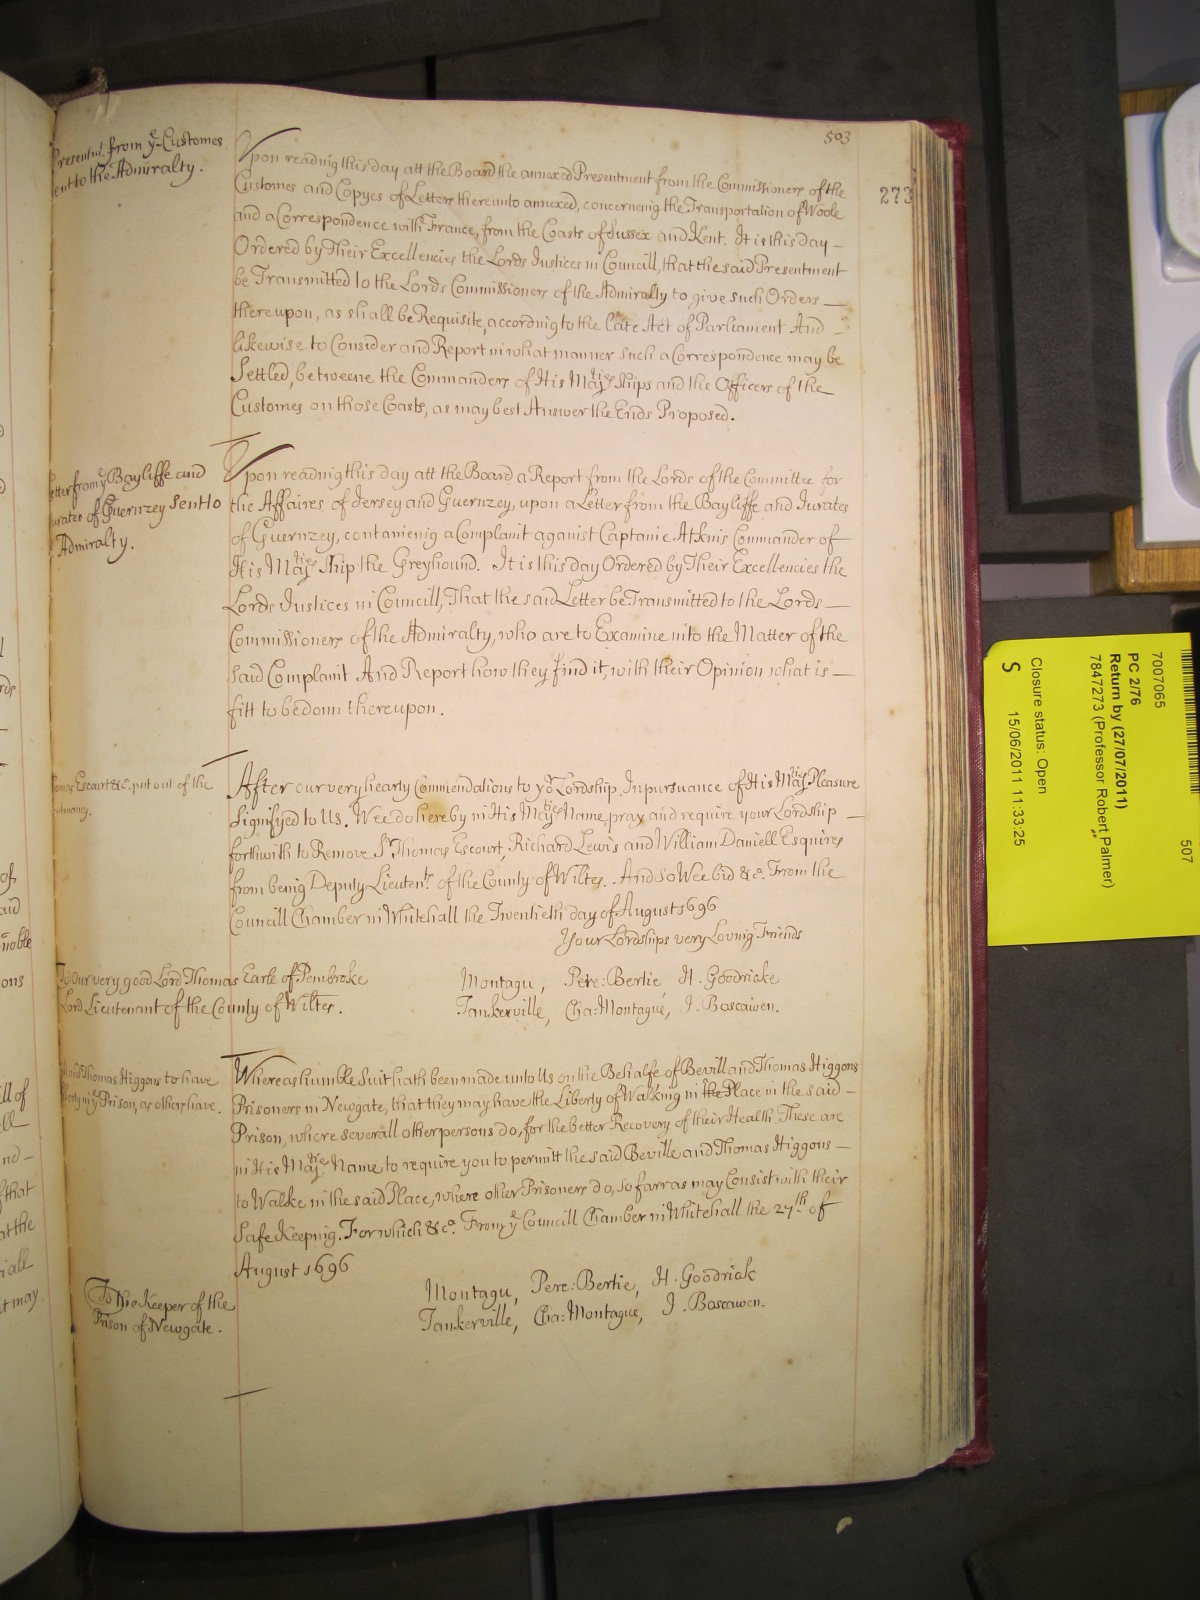 503
273
Presentmt. from ye Customes
sent to the Admiralty.
Upon reading this day att the Board the annexed Presentment from the Commissioners of the
Customes and Copyes of Letters thereunto annexed, concerneing the Transportation of Woole
and a Correspondence with France, from the Coasts of Sussex and Kent. It is this day
Ordered by Their Excellencies the Lords Justices in Councill, that the said Presentment
be Transmitted to the Lords Commissioners of the Admiralty to give such Orders
thereupon, as shall be Requisite, according to the late Act of Parliament And
likewise to Consider and Report in what manner such a Correspondence may be
Settled, betweene the Commanders of His Majties Ships and the Officers of the
Customes on those Coasts, as may best Answer the Ends Proposed.
etter from ye Bayliffe and
urates of Guernzey Sent to
Admiralty.
Upon reading this day att the Board a Report from the Lords of the Committee for
the Affaires of Jersey and Guernzey, upon a Letter from the Bayliffe and Jurates
of Guernzey, containeing a Complaint against Captaine Atkins Commander of
His Majties Ship the Greyhound. It is this day Ordered by Their Excellencies the
Lords Justices in Councill, That the said Letter be Transmitted to the Lords
Commissioners of the Admiralty, who are to Examine into the Matter of the
said Complaint And Report how they find it, with their Opinion what is
fitt to be donn thereupon.
Escourt &c. put out of the
After our very hearty Commendations to yor Lordship. In pursuance of His Majties Pleasure
Signifyed to Us. Wee do hereby in His Majties Name, pray and require your Lordship
forthwith to Remove Sr Thomas Escourt, Richard Lewis and William Daniell Esquires
from being Deputy Lieutents. of the County of Wiltes. And so Wee bid &c. From the
Councill Chamber in Whitehall the Twentieth day of August 1696
Your Lordships very Loving Friends
To Our very good Lord Thomas Earle of Pembroke
Lord Lieutenant of the County of Wiltes.
Montagu, Pere: Bertie, H. Goodricke
Tankerville, Cha: Montague, J. Boscawen.
and Thomas Higgons to have
liberty in ye Prison, as others have.
Whereas humble Suit hath been made unto Us on the Behalfe of Bevill and Thomas Higgons
Prisoners in Newgate, that they may have the Liberty of Walking in the Place in the said
Prison, where severall other persons do, for the better Recovery of their Health. These are
in His Majties Name to require you to permitt the said Beville and Thomas Higgons
to Walke in the said Place, where other Prisoners do, so farr as may Consist with their
Safe Keeping. For which &ca. From ye Councill Chamber in Whitehall the 27th of
August 1696
To the Keeper of the
Prison of Newgate.
Montagu, Pere: Bertie, H. Goodrick
Tankerville, Cha: Montague, J. Boscawen.
7007065
507
PC 2/76
Return by (27/07/2011)
7847273 (Professor Robert Palmer)
Closure status: Open
S
15/06/2011 11:33:25